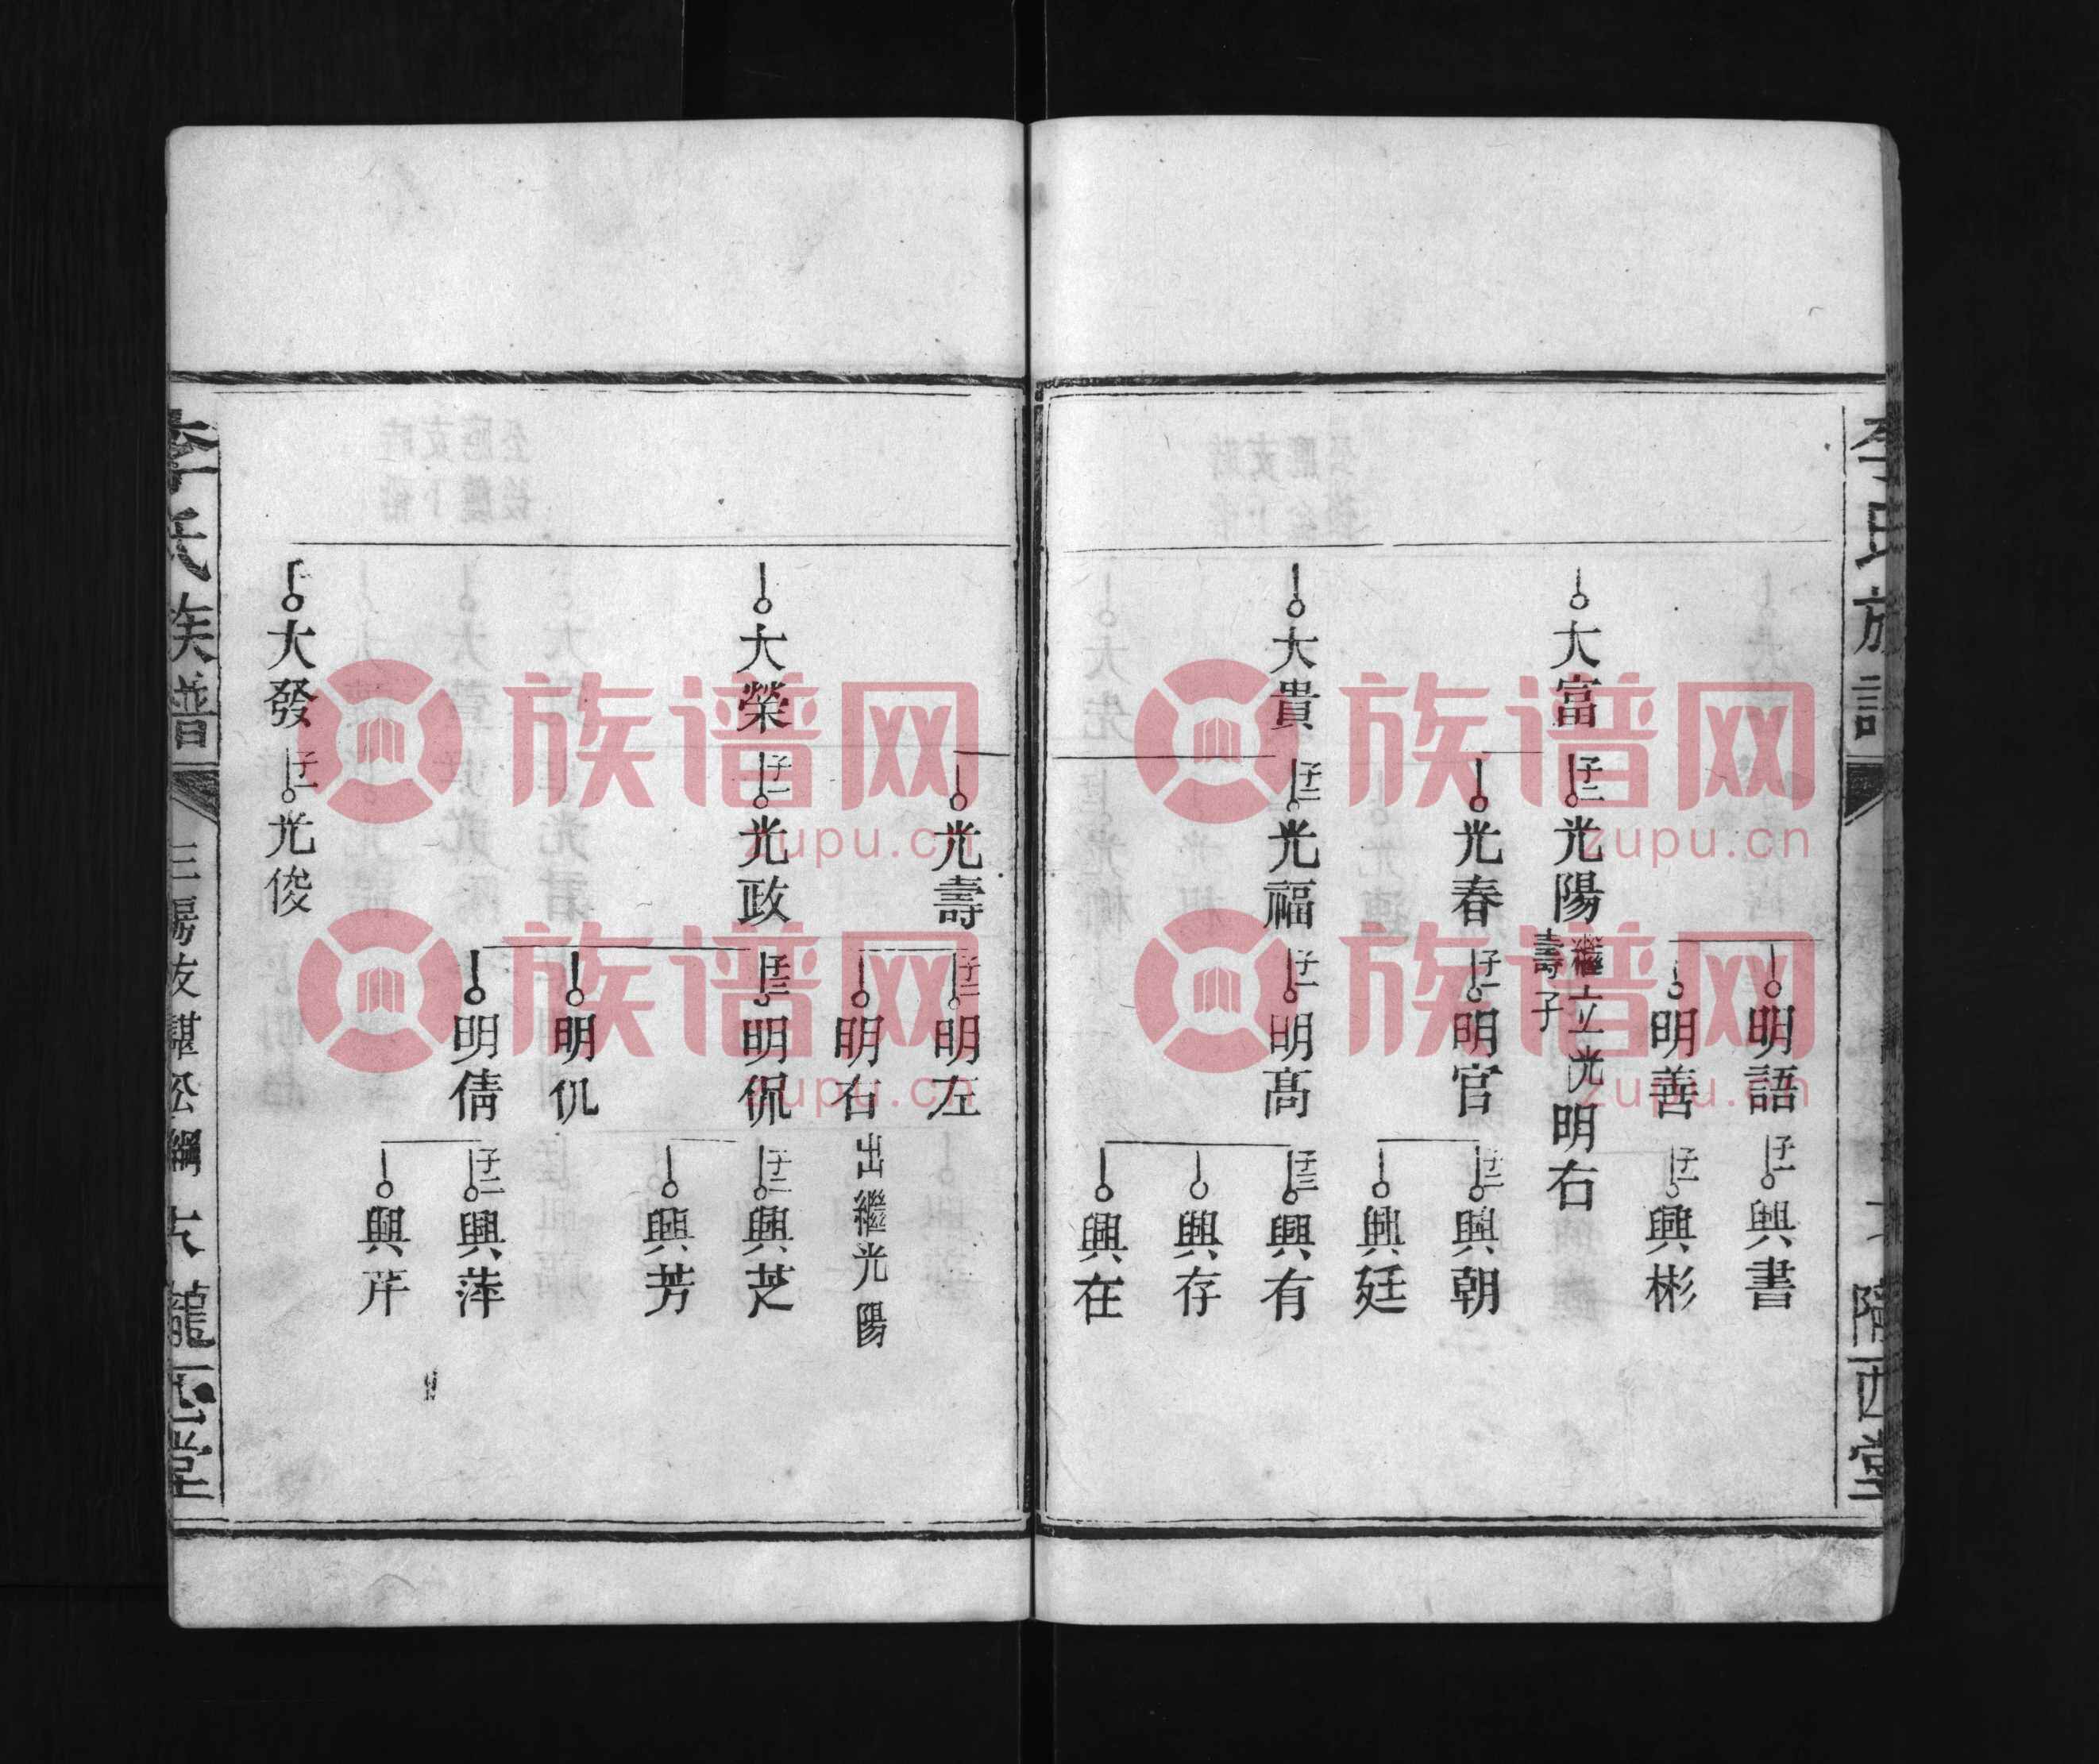 李氏族譜
隴西堂
明語
子一
興書
明善
子一
興彬
大富
子二
光陽
繼立光
壽子
明右
光春
子一
明官
子二
興朝
興廷
大貴
子二
光福
子一
明高
子三
興有
興存
興在
光壽
子二
明左
明右
出繼光陽
大榮
子一
光政
子三
明侃
子二
興芝
興芳
明仉
明倩
子二
興萍
興芹
大發
子一
光俊
李氏族譜
三房友謀公綱
隴西堂
族谱网
zupu.cn
族谱网
zupu.cn
族谱网
zupu.cn
族谱网
zupu.cn